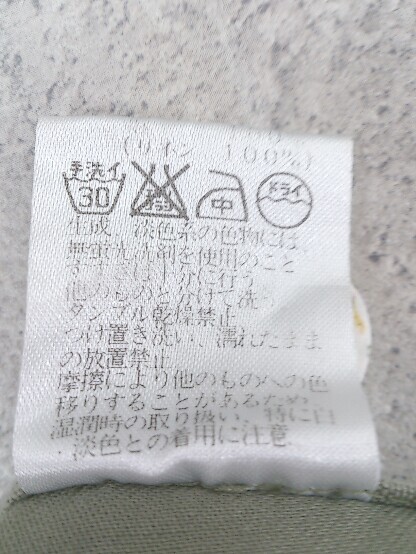 (リネン 100%)
手洗イ 30 中 ドライ
生成、淡色系の色物には、
無蛍光洗剤を使用のこと
すすぎは十分に行う
他のものと分けて洗う
タンブル乾燥禁止
つけ置き洗い、濡れたまま
の放置禁止
摩擦により他のものへの色
移りすることがあるため
湿潤時の取り扱い、特に白
、淡色との着用に注意